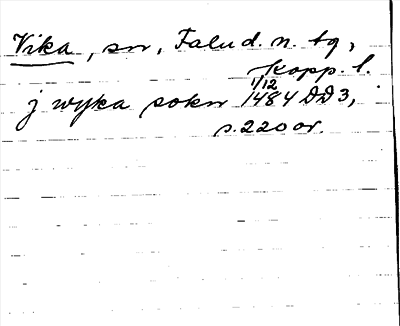 Vika, sn, Falu d. n. tg,
Kopp. l.
1/12
j wyka sokn 1484 DD 3,
s. 220 or.